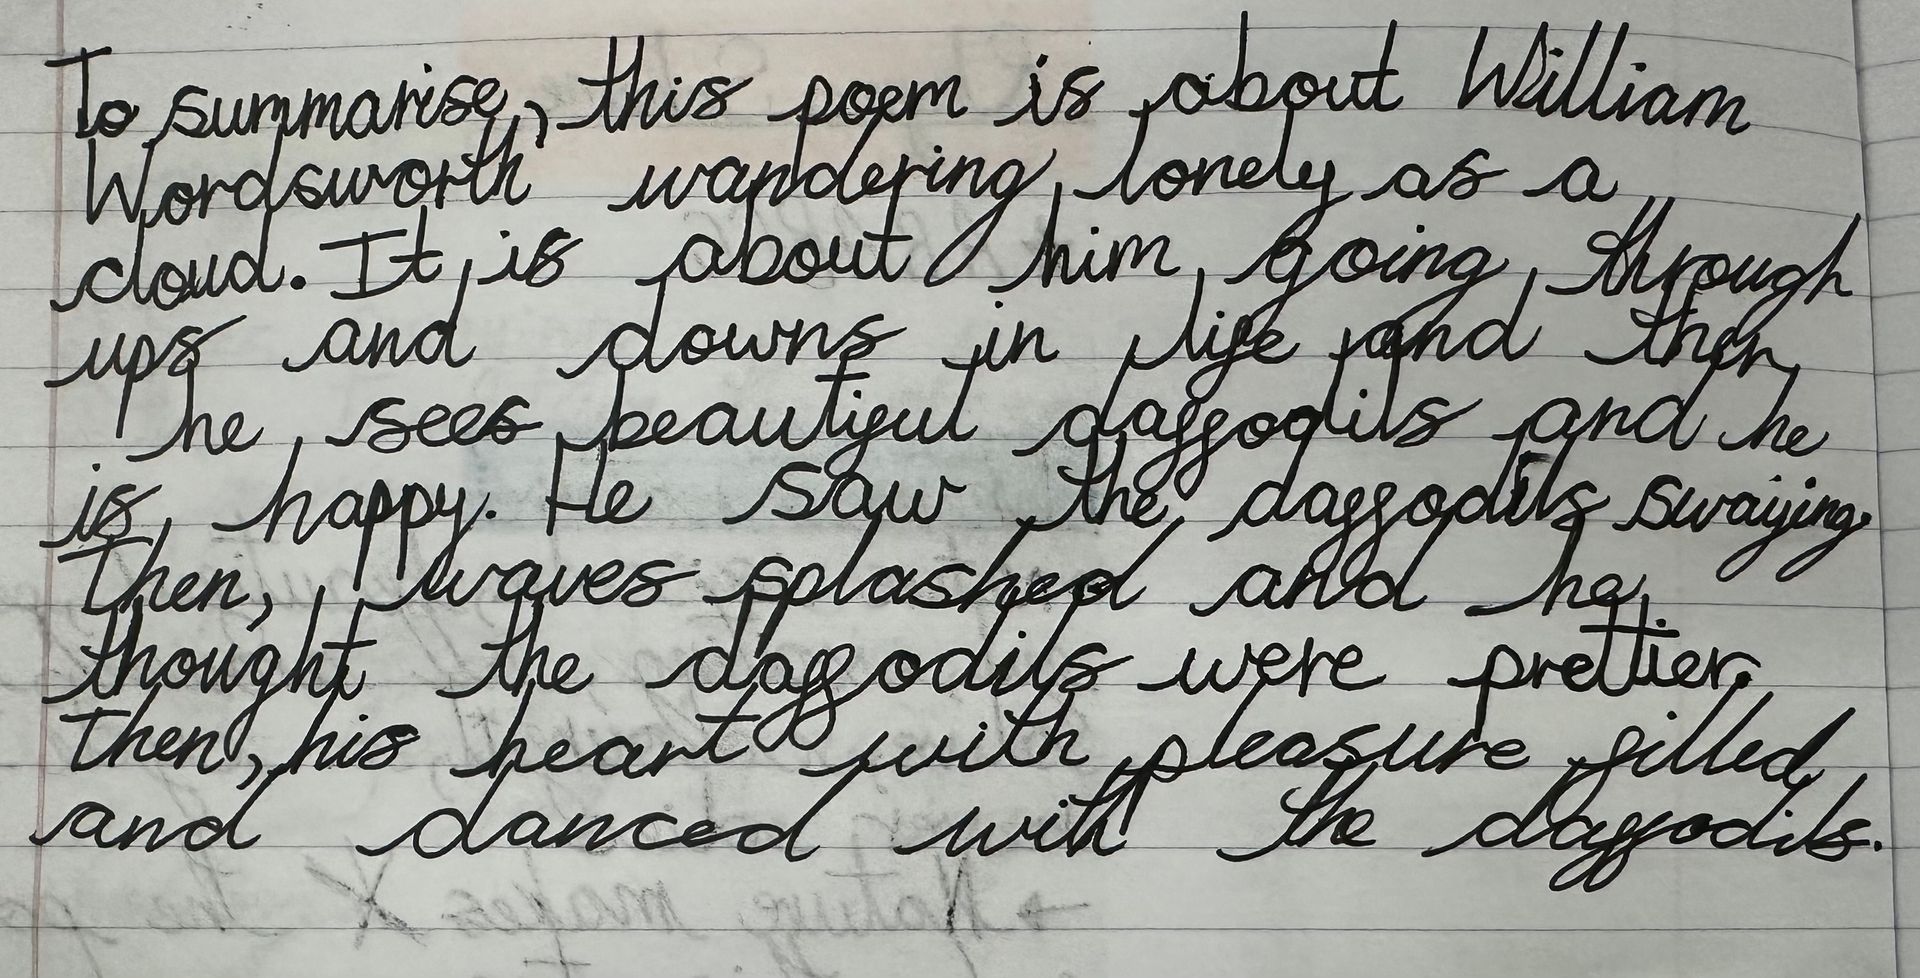 To summarise, this poem is about William
Wordsworth wandering lonely as a
cloud. It is about him going through
ups and downs in life and then
he sees beautiful daffodils and he
is happy. He saw the daffodils swaying.
Then, waves splashed and he
thought the daffodils were prettier.
Then, his heart with pleasure filled
and danced with the daffodils.